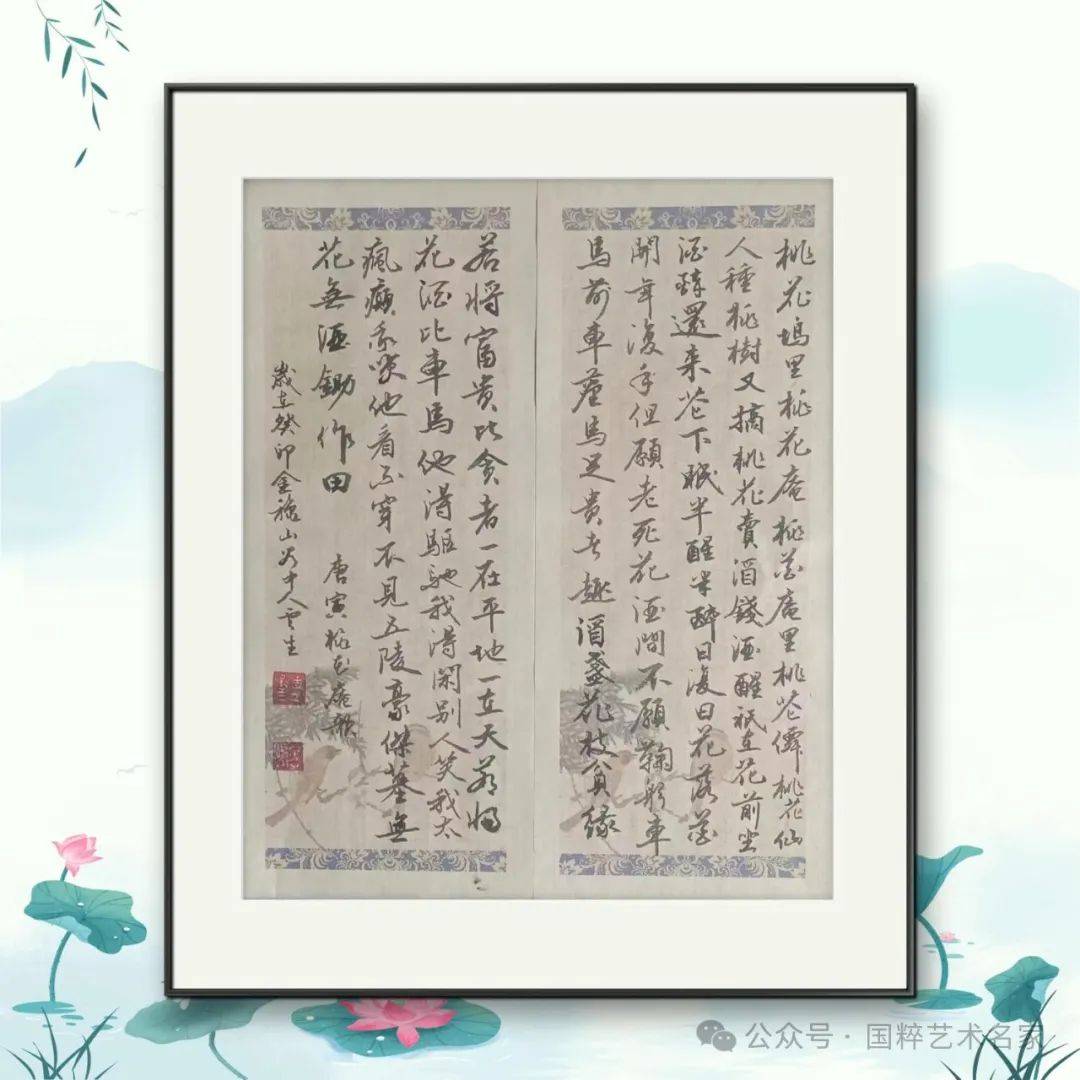 桃花塢里桃花庵桃花庵里桃花僊桃花仙
人種桃樹又摘桃花賣酒錢酒醒祇在花前坐
酒醉還来花下眠半醒半醉日復日花落花
開年復年但願老死花酒間不願鞠躬車
馬前車塵馬足貴者趣酒盞花枝貧緣
若將富貴比貧者一在平地一在天若將
花酒比車馬他得驅馳我得閑別人笑我太
瘋癲我笑他看不穿不見五陵豪傑墓無
花無酒鋤作田
唐寅桃花庵歌
歲在癸卯金穐山谷中人雲生
公众号·国粹艺术名家